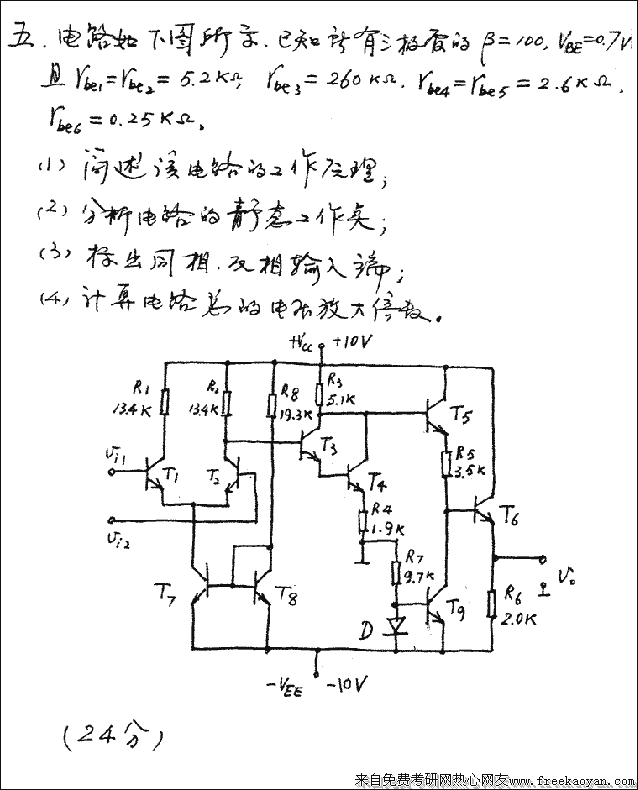 五、电路如下图所示.已知所有三极管的 β=100, VBE=0.7V
且 rbe1=rbe2=5.2KΩ, rbe3=260KΩ, rbe4=rbe5=2.6KΩ,
rbe6=0.25KΩ。
(1) 简述该电路的工作原理;
(2) 分析电路的静态工作点;
(3) 标出同相、反相输入端;
(4) 计算电路总的电压放大倍数。
+Vcc +10V
R1
13.4K
R1
13.4K
R8
19.3K
R3
5.1K
T5
Vi1
T1
T2
T3
T4
R5
3.5K
R4
1.9K
T6
Vi2
R7
9.7K
Vo
T7
T8
D
T9
R6
2.0K
-VEE -10V
(24分)
来自免费考研网热心网友 www.freekaoyan.com